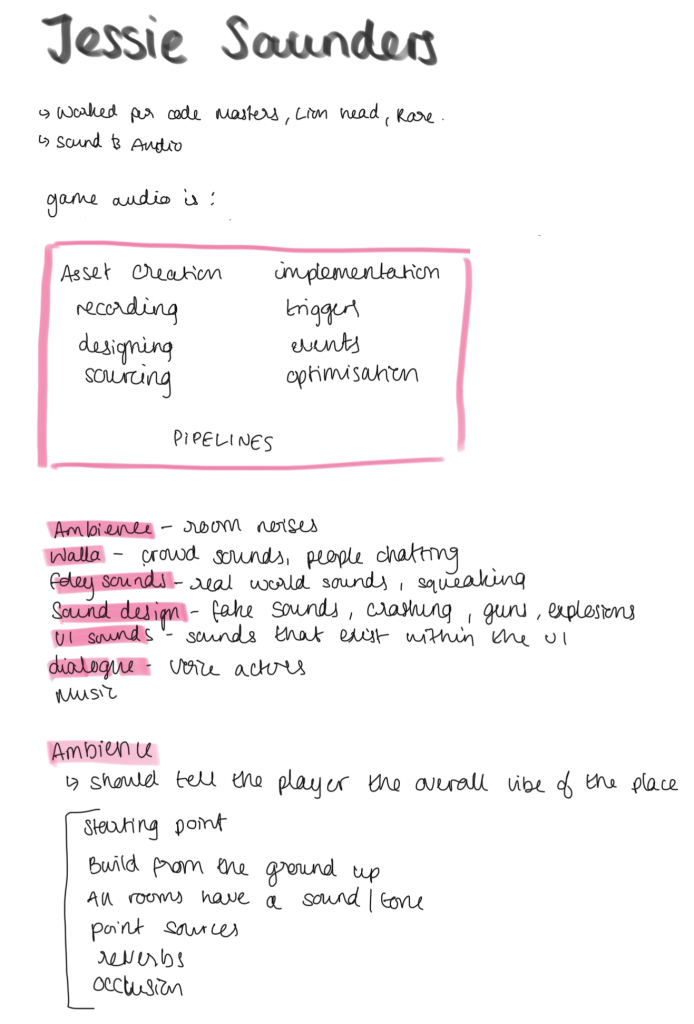 Jessie Saunders
↳ Worked for code Masters, Lion head, Rare.
↳ Sound & Audio
game audio is :
Asset Creation implementation
recording triggers
designing events
sourcing optimisation
PIPELINES
Ambience – room noises
Walla – crowd sounds, people chatting
foley sounds – real world sounds, squeaking
Sound design – fake sounds, crashing, guns, explosions
UI sounds - sounds that exist within the UI
dialogue - voice actors
Music
Ambience
↳ should tell the player the overall vibe of the place
Starting point
Build from the ground up
All rooms have a sound/tone
point sources
reverbs
occlusion